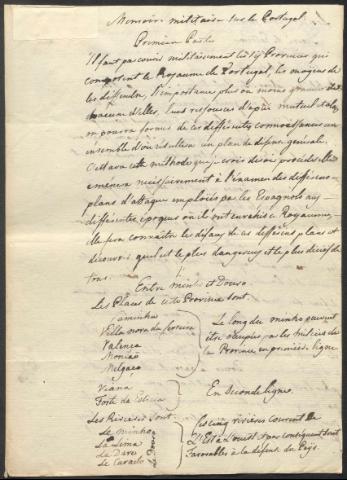 Memoire militaire sur le Portugal.
Premiere Partie
Il faut parcourir militairement les six Provinces qui
composent le Royaume de Portugal, les moyens de
les défendre, l'importance plus ou moins grande de
chacune d'elles, leurs ressources d'apui mutuel et alors
on pourra former de ces différentes connoissances un
ensemble d'où résultera un plan de défense générale.
C'est avec cette méthode que je crois devoir procéder elle
amenera nécessairement à l'examen des différens
plans d'attaque emploiés par les Espagnols aux
différentes époques où ils ont envahi ce Royaume,
elle fera connaitre les défauts de ces différens plans et
découvrir quel est le plus dangereux et le plus décisif de
tous.
Entre minho et Douro.
Les Places de cette Province sont.
Caminha
Villa nova da Cerveira
Valença
Monção
Melgaço
Le long du minho peuvent
être occupées par les milices de
la Province en première ligne
Viana
Forte da
En Seconde ligne.
Les Rivieres sont
Le minho
La Lima
Le Cavado
Le Douro
Les cinq rivières courent de
L'Est à l'ouest et par conséquent sont
Favorables à la défense du Païs.